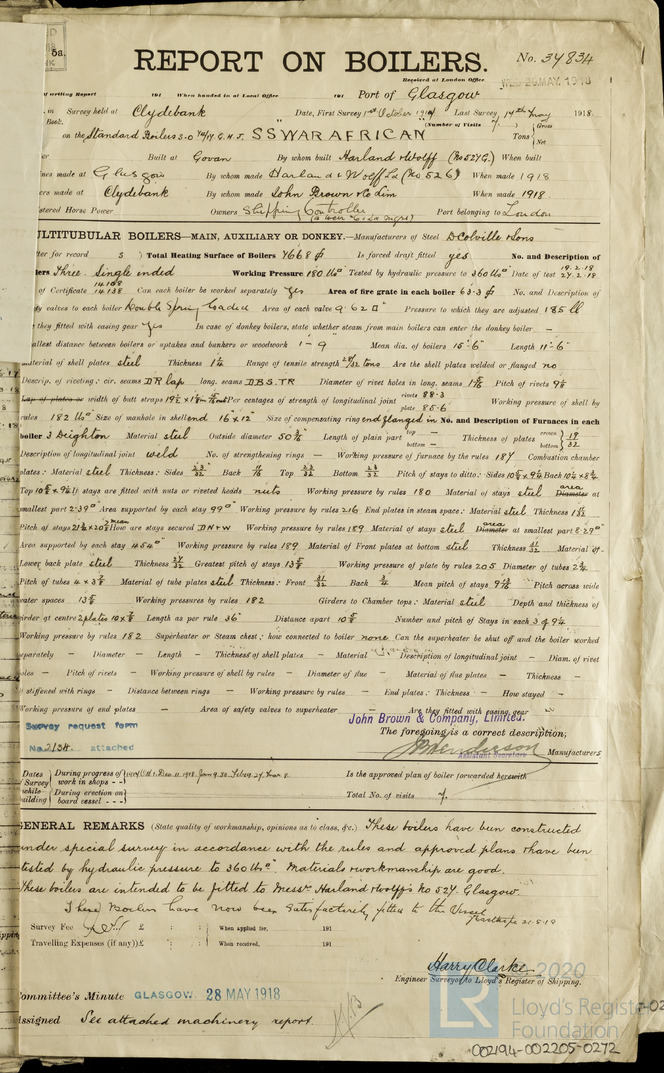 5a.
REPORT ON BOILERS.
No. 34834
Received at London Office
WED. 29 MAY. 1918
of writing Report 191 When handed in at Local Office 191 Port of Glasgow
in Survey held at Clydebank Date, First Survey 1st October 1917 Last Survey 14th May 1918.
Book. (Number of Visits 7.)
on the Standard Boilers S.S WAR AFRICAN Tons { Gross Net
Built at Govan By whom built Harland & Wolff (No 527G.) When built
ines made at Glasgow By whom made Harland & Wolff Ld (No 526) When made 1918
ers made at Clydebank By whom made John Brown & Co Lim When made 1918
stered Horse Power Owners Shipping Controller Port belonging to London
ULTITUBULAR BOILERS—MAIN, AUXILIARY OR DONKEY.—Manufacturers of Steel D Colville & Sons
tter for record S) Total Heating Surface of Boilers 4668 Is forced draft fitted yes No. and Description of
lers Three. Single ended Working Pressure 180 lbs Tested by hydraulic pressure to 360 lbs Date of test 19.2.18 27.2.18
of Certificate 14108 14138 Can each boiler be worked separately Yes Area of fire grate in each boiler 63.3 No. and Description of
ty valves to each boiler Double Spring loaded Area of each valve 9.62 Pressure to which they are adjusted 185 lb
they fitted with easing gear Yes In case of donkey boilers, state whether steam from main boilers can enter the donkey boiler —
allest distance between boilers or uptakes and bunkers or woodwork 1-9 Mean dia. of boilers 15-6 Length 11-6
aterial of shell plates steel Thickness 1¼ Range of tensile strength 28/32 tons Are the shell plates welded or flanged no
Descrip. of riveting: cir. seams DR lap long. seams DBS.TR Diameter of rivet holes in long. seams Pitch of rivets
Lap of plates or width of butt straps Per centages of strength of longitudinal joint rivets 88.3 plate 85.6 Working pressure of shell by
rules 182 lbs Size of manhole in shell end 16"x12" Size of compensating ring end flanged in No. and Description of Furnaces in each
boiler 3 Deighton Material steel Outside diameter Length of plain part top — bottom — Thickness of plates crown bottom 19/32
Description of longitudinal joint weld No. of strengthening rings — Working pressure of furnace by the rules 187 Combustion chamber
plates: Material steel Thickness: Sides 23/32 Back Top 23/32 Bottom 23/32 Pitch of stays to ditto: Sides Back
Top If stays are fitted with nuts or riveted heads nuts Working pressure by rules 180 Material of stays steel area Diameter at
smallest part 2.39 Area supported by each stay 99 Working pressure by rules 216 End plates in steam space: Material steel Thickness
Pitch of stays How are stays secured DN&W Working pressure by rules 189 Material of stays steel area Diameter at smallest part 8.29
Area supported by each stay 454 Working pressure by rules 189 Material of Front plates at bottom steel Thickness Material of
Lower back plate steel Thickness Greatest pitch of stays Working pressure of plate by rules 205 Diameter of tubes
Pitch of tubes Material of tube plates steel Thickness: Front Back ¾ Mean pitch of stays Pitch across wide
water spaces Working pressures by rules 182 Girders to Chamber tops: Material steel Depth and thickness of
girder at centre 2 plates Length as per rule 36" Distance apart Number and pitch of Stays in each
Working pressure by rules 182 Superheater or Steam chest: how connected to boiler none Can the superheater be shut off and the boiler worked
eparately — Diameter — Length — Thickness of shell plates — Material Description of longitudinal joint — Diam. of rivet
oles — Pitch of rivets — Working pressure of shell by rules — Diameter of flue — Material of flue plates — Thickness —
If stiffened with rings — Distance between rings — Working pressure by rules — End plates: Thickness — How stayed —
Working pressure of end plates — Area of safety valves to superheater — Are they fitted with easing gear —
Survey request form
No. 2134 attached
John Brown & Company, Limited.
The foregoing is a correct description,
JB Henderson Manufacturers
Assistant Secretary
Dates of Survey while building
During progress of work in shops - -
During erection on board vessel - - -
Is the approved plan of boiler forwarded herewith
Total No. of visits 7.
GENERAL REMARKS (State quality of workmanship, opinions as to class, &c.) These boilers have been constructed
under special survey in accordance with the rules and approved plans & have been
tested by hydraulic pressure to 360 lbs. Materials & workmanship are good.
These boilers are intended to be fitted to Messrs Harland & Wolff's No 527 Glasgow.
These Boilers have now been satisfactorily fitted to the Vessel
21.5.18
Survey Fee £ : : When applied for, 191
Travelling Expenses (if any) £ : : When received, 191
Harry Clarke 2020
Engineer Surveyor to Lloyd's Register of Shipping.
Committee's Minute GLASGOW. 28 MAY 1918
Assigned See attached machinery report.
LR Lloyd's Register
Foundation
002194-002205-0272